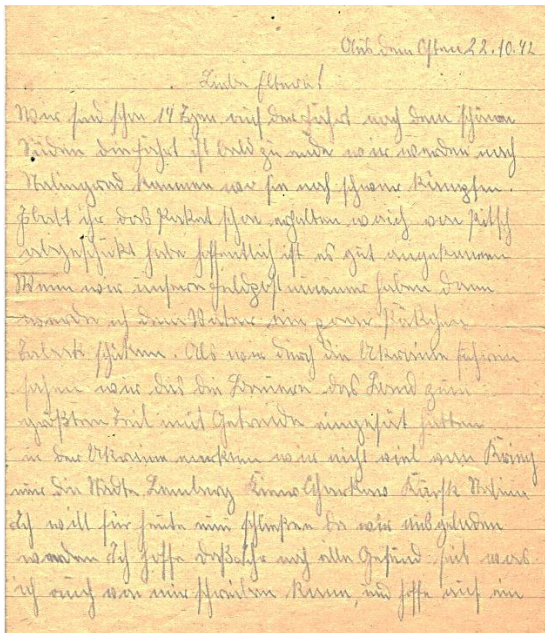 Aus dem Osten 22.10.42
Liebe Eltern!
Wir sind schon 14 Tgen auf der Fahrt nach dem schönen
Süden die Fahrt ist bald zu ende wir werden nach
Stalingrad kommen wo sie noch schwer kämpfen.
Habt ihr das Paket schon erhalten welch von
abgeschikt habe hoffentlich ist es gut angekommen
Wenn wir unsere Feldpostnummer haben dann
werde ich dem Vater ein paar Päkchen
Tabak schiken. Als wir durch die Ukraine fuhren
sahen wir das die Bauern das Land zum
größten Teil mit Getreide eingesät hatten
in der Ukraine merkten wir nicht viel von Krieg
nur die Städte Lemberg Kiew Charkow Kursk
Ich will für heute nun schließen da wir ausgeladen
werden Ich hoffe daß ihr noch alle Gesund seit was
ich auch von mir schreiben kann, und hoffe auf ein